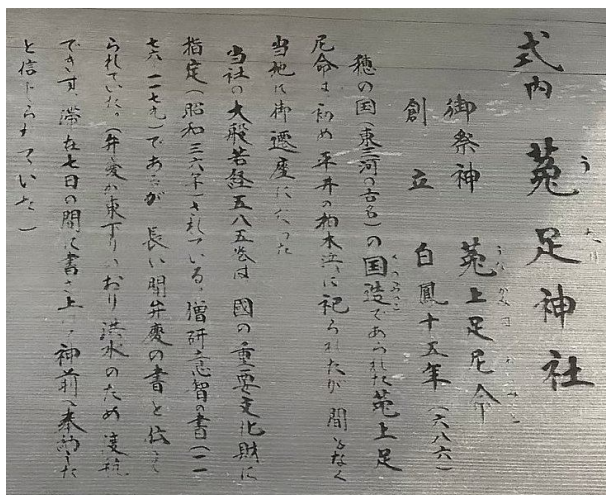 式内 菟足神社
御祭神 菟上足尼命
創立 白鳳十五年(六八六)
穂の国(東三河の古名)の国造であられた菟上足
尼命は初め平井の柏木浜に祀られたが間もなく
当地に御遷座になった
当社の大般若経五八五巻は 國の重要文化財に
指定(昭和三六年)されている。僧研意智の書(一一
七六 一一七九)であるが 長い間弁慶の書と伝え
られていた。(弁慶が東下りのおり洪水のため渡航
できず 滞在七日の間に書き上げ神前へ奉納した
と信じられていた)